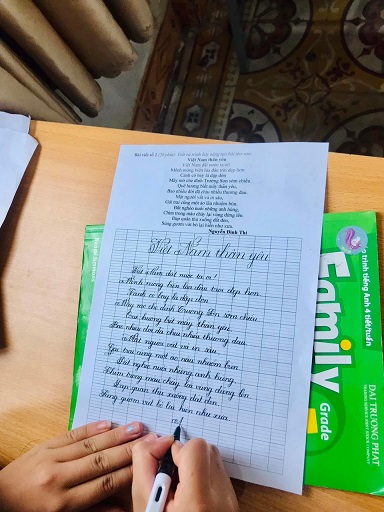 Bài viết số 2 (20 phút): Viết và trình bày đúng bài thơ sau:
Việt Nam thân yêu
Việt Nam đất nước ta ơi!
Mênh mông biển lúa đâu trời đẹp hơn.
Cánh cò bay lả dập dờn
Mây mờ che đỉnh Trường Sơn sớm chiều.
Quê hương biết mấy thân yêu,
Bao nhiêu đời đã chịu nhiều thương đau.
Mặt người vất vả in sâu,
Gái trai cũng một áo nâu nhuộm bùn.
Đất nghèo nuôi những anh hùng,
Chìm trong máu chảy lại vùng đứng lên.
Đạp quân thù xuống đất đen,
Súng gươm vứt bỏ lại hiền như xưa.
Nguyễn Đình Thi
Việt Nam thân yêu
Việt Nam đất nước ta ơi!
Mênh mông biển lúa đâu trời đẹp hơn.
Cánh cò bay lả dập dờn
Mây mờ che đỉnh Trường Sơn sớm chiều
Quê hương biết mấy thân yêu
Bao nhiêu đời đã chịu nhiều thương đau
Mặt người vất vả in sâu,
Gái trai cũng một áo nâu nhuộm bùn.
Đất nghèo nuôi những anh hùng,
Chìm trong máu chảy lại vùng đứng lên
Đạp quân thù xuống đất đen,
Súng gươm vứt bỏ lại hiền như xưa
o trình tiếng Anh 4 tiết/tuần
Family
Grade
DAI TRUONG PHAT